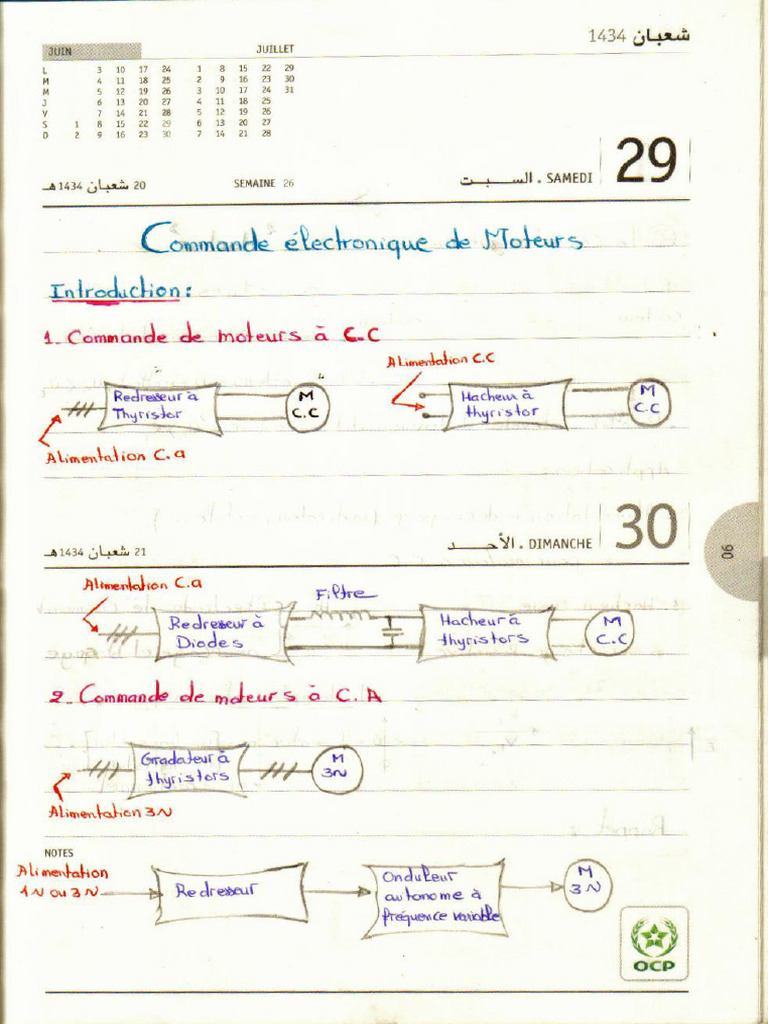 شعبان 1434
JUIN JUILLET
L 3 10 17 24 1 8 15 22 29
M 4 11 18 25 2 9 16 23 30
M 5 12 19 26 3 10 17 24 31
J 6 13 20 27 4 11 18 25
V 7 14 21 28 5 12 19 26
S 1 8 15 22 29 6 13 20 27
D 2 9 16 23 30 7 14 21 28
20 شعبان 1434هـ SEMAINE 26 السبت . SAMEDI 29
Commande électronique de Moteurs
Introduction :
1. Commande de moteurs à C.C
Alimentation C.C
Redresseur à
Thyristor
M
C.C
Hacheur à
thyristor
M
C.C
Alimentation C.a
21 شعبان 1434هـ الأحد . DIMANCHE 30
06
Alimentation C.a
Filtre
Redresseur à
Diodes
Hacheur à
thyristors
M
C.C
2. Commande de moteurs à C.A
Gradateur à
thyristors
M
3~
Alimentation 3~
NOTES
Alimentation
1~ ou 3~
Redresseur
Onduleur
autonome à
fréquence variable
M
3~
OCP